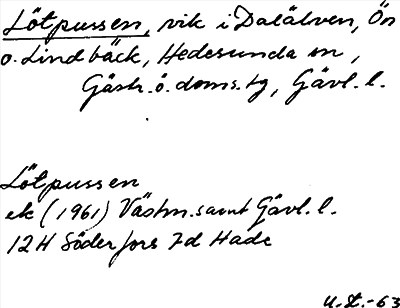 Lötpussen, vik i Dalälven, Ön
o. Lindbäck, Hedesunda sn,
Gästr. ö. doms.tg, Gävl. l.
Lötpussen
ek (1961) Västm. samt Gävl. l.
12H Söderfors 7d Hade
U.L.-63